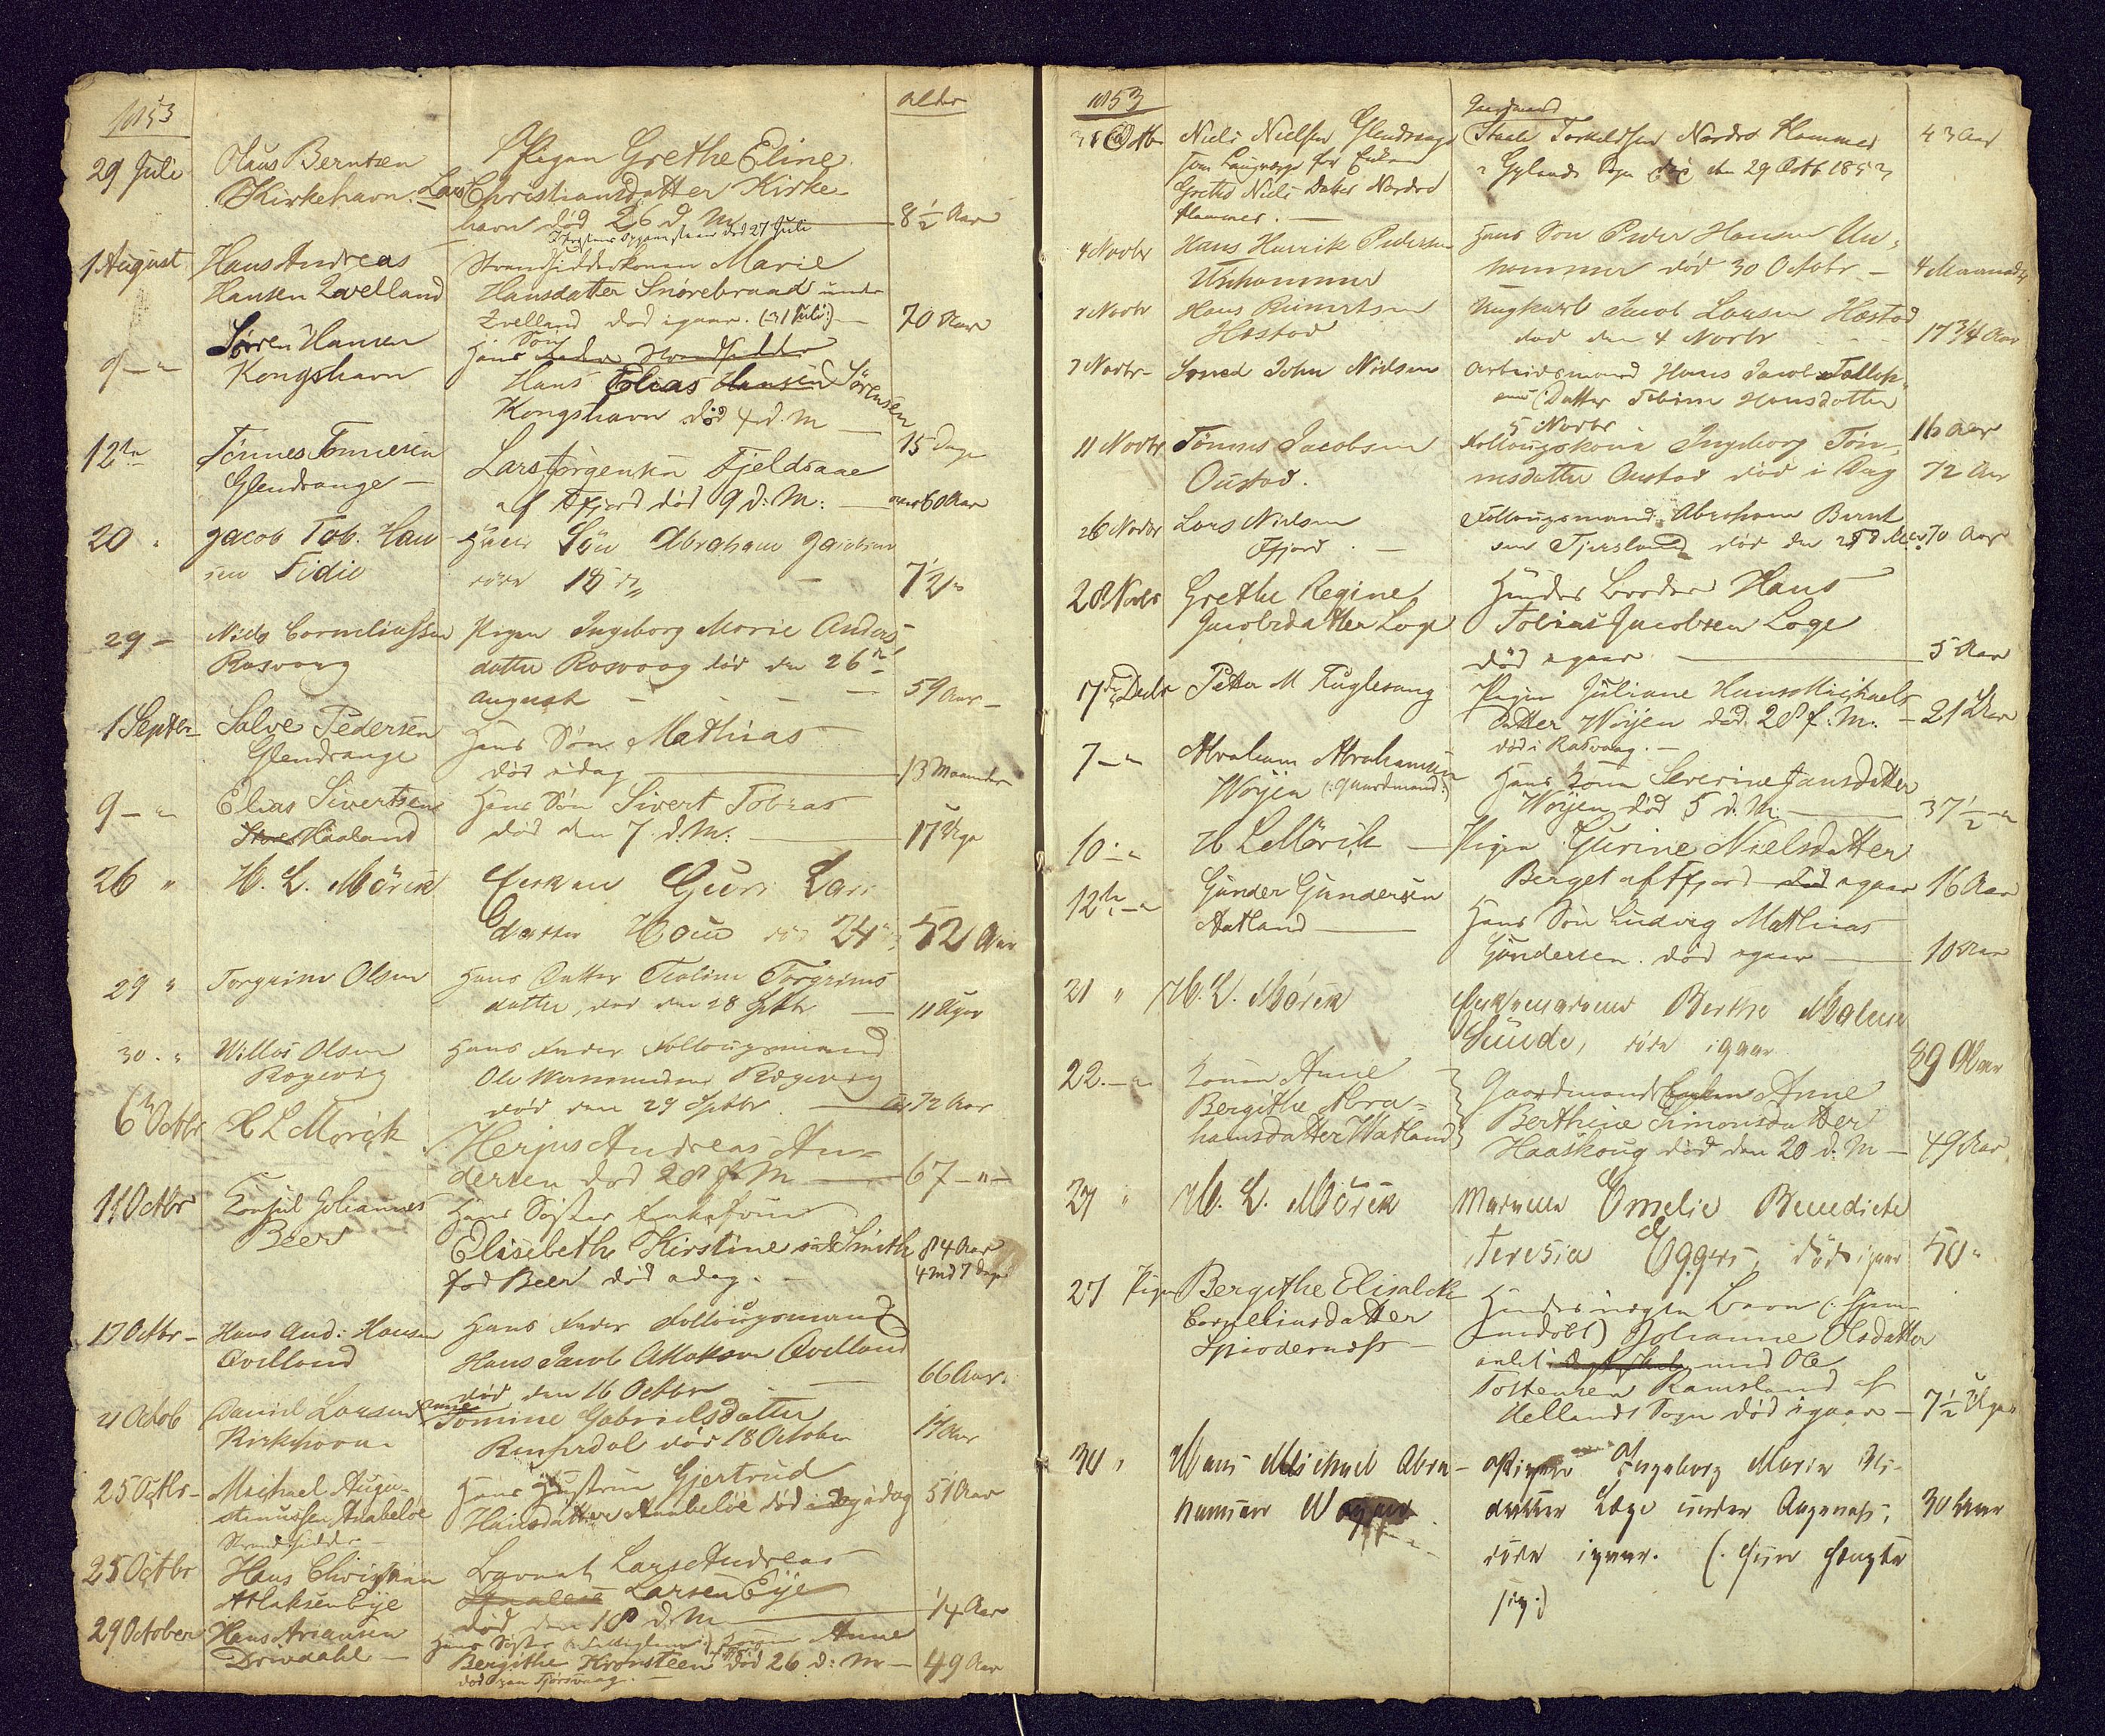 1853
Alder
29 Juli
Olaus Berntsen
Kirkehavn. Lars
Pigen Grethe Eline
Christiansdatter Kirke-
havn død 26 d. M.
27 Juli
8 1/2 Aar
1 August
Hans Andreas
Hansen Qvelland
Strandsidderkonen Marie
Hansdatter Snørebraad under
Qvelland død igaar. (31 Juli)
70 Aar
9 - "
Søren Hansen
Kongshavn
Hans Søn
Hans Elias Hansen Sørensen
Kongshavn død 4 d. M
15 Dage
12te
Tønnes Tønnesen
Glendrange -
Lars Jørgensen Fjeldsaae
af Fjord død 9 d: M:
60 Aar
20 "
Jacob Tob. Han
sen Fidie
Hans Søn Abraham Jacobsen
døde 18 d
7 1/2 "
29 -
Niels Corneliussen
Rasvaag
Pigen Ingeborg Marie Anders
datter Rasvaag død den 26
August
59 Aar -
1 Septbr -
Salve Pedersen
Glendrange
Hans Søn Mathias
død idag
13 Maaneder
9 - "
Elias Sivertsen
Haaland
Hans Søn Sivert Tobias
død den 7. d. M.
17 Uger
26 "
H. L. Mörck
Enken Guri Lars
datter Houe død 24
52 Aar
29 "
Torgrim Olsen
Hans Datter Teoline Torgrims
datter, død den 28 Septbr
11 Uger
30 . "
Willas Olsen
Rægevig
Hans Fader Follougsmand
Ole Rægevig
død den 29 Septbr.
72 Aar
6 Octbr
H L Mörck
Herjus Andreas An-
dersen død 28 f. M
67 - " -
11 Octbr
Consul Johannes
Beer
Hans Søster Enkefrue
Elisebeth Kirstine sal Smith
fød Beer død idag.
84 Aar
4 Md 7 Dage
17 Octbr -
Hans And: Hansen
Qvelland
Hans Fader Follougsmand
Hans Jacob Atlaksen Qvelland
død den 16 Octbr
66 Aar.
21 Octob
Daniel Larsen
Kirkehavn
Tomine Gabrielsdatter
død 18 October
Aar
25 Octbr -
Michael Augu-
stinussen Anabeløe
Hans Hustrue Gjertrud
Hansdatter Anabeløe død idag
51 Aar
Strandsidder
25 Octbr
Hans Christian
Atlaksen Eije
Barnet Lars Andreas
Larsen Eije
død den 18 d. M
1/4 Aar
29 October
Hans Arnansen
Drivdahl -
Hans Søster Konen Anne
Bergithe Kronsteen død 26 d: M -
49 Aar
død paa Fjorsvaag.
1853
31 Octbr
Niels Nielsen Glendrange
som Laugværge for Enken
Grethe Niels Datter Nordre
Hammer. -
Gaardmand
Staale Torkeldsen Nordre Hammer
i Gylands Sogn død den 29 Octb 1853
43 Aar
4 Novbr
Hans Henrik Pedersen
Urhammer
Hans Søn Peder Hansen Ur-
hammer død 30 Octobr -
4 Maaneder
Novbr
Hans Reinertsen
Hestad
Ungkarl Jacob Larsen Hestad
død den 4 Novbr
17 3/4 Aar
7 Novbr -
Smed John Nielsen
Arbeidsmand Hans Jacob Tollak-
sens Datter Hansdatter
5 Novbr
16 Aar
11 Novbr
Tønnes Jacobsen
Oustad.
Follougskone Ingeborg Tøn-
nesdatter Oustad død i Dag
72 Aar
26 Novbr
Lars Nielsen
Fjord . -
Follougsmand Abraham Bernt
sen Tjersland død den 25 d. M.
70 Aar
28 Novbr
Grethe Regine
Jacobsdatter Loge
Hendes Broder Hans
Tobias Jacobsen Loge
død igaar
5 Aar
17de Decbr
Petter M Fuglevang
Pigen Juliane HansMichaels
datter Wöijen død 28 f: M: -
død i Rasvaag. -
21 Aar
7 - "
Abraham Abrahamsen
Wöijen (: gaardmand:)
Hans Kone Severine Jansdatter
Wöijen død 5 d: M:
37 1/2 - "
10 - "
H L Mörck
Pigen Gurine Nielsdatter
Berget af Fjord død igaar
16 Aar
12te - "
Gunder Gundersen
Aatland
Hans Søn Ludvig Mathias
Gundersen. død igaar
10 Aar
21 "
H. L. Mörck
Enkemadame Berthe Malene
Sunde, døde igaar
89 Aar
22 - "
Konen Anne
Bergithe Abra-
hamsdatter Watland
Gaardmands Enken Anne
Berthine Simonsdatter
Haaskoug død den 20 d. M -
49 Aar
27 "
H. L. Mörck
Madame Emelie Benedicte
Teresia Eggers, død igaar
50 "
27
Pigen Bergithe Elisabeth
Corneliusdatter
Spioderness -
Hendes uægte Barn (: hjem-
medøbt) Johanne Olsdatter
avlet med Ole
Tostensen Ramsland af
Hellands Sogn død igaar -
7 1/2 Uger
30 "
Hans Michael Abra-
hamsen
Pigen Ingeborg Marie Ols-
datter Loge under Aagenæs,
døde igaar. (: hun hængte
sig :)
30 Aar